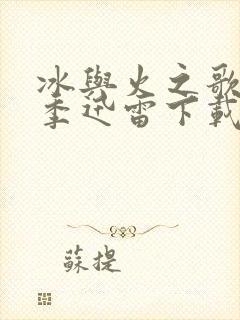 冰與火之歌
季迅雷下載
蘇提